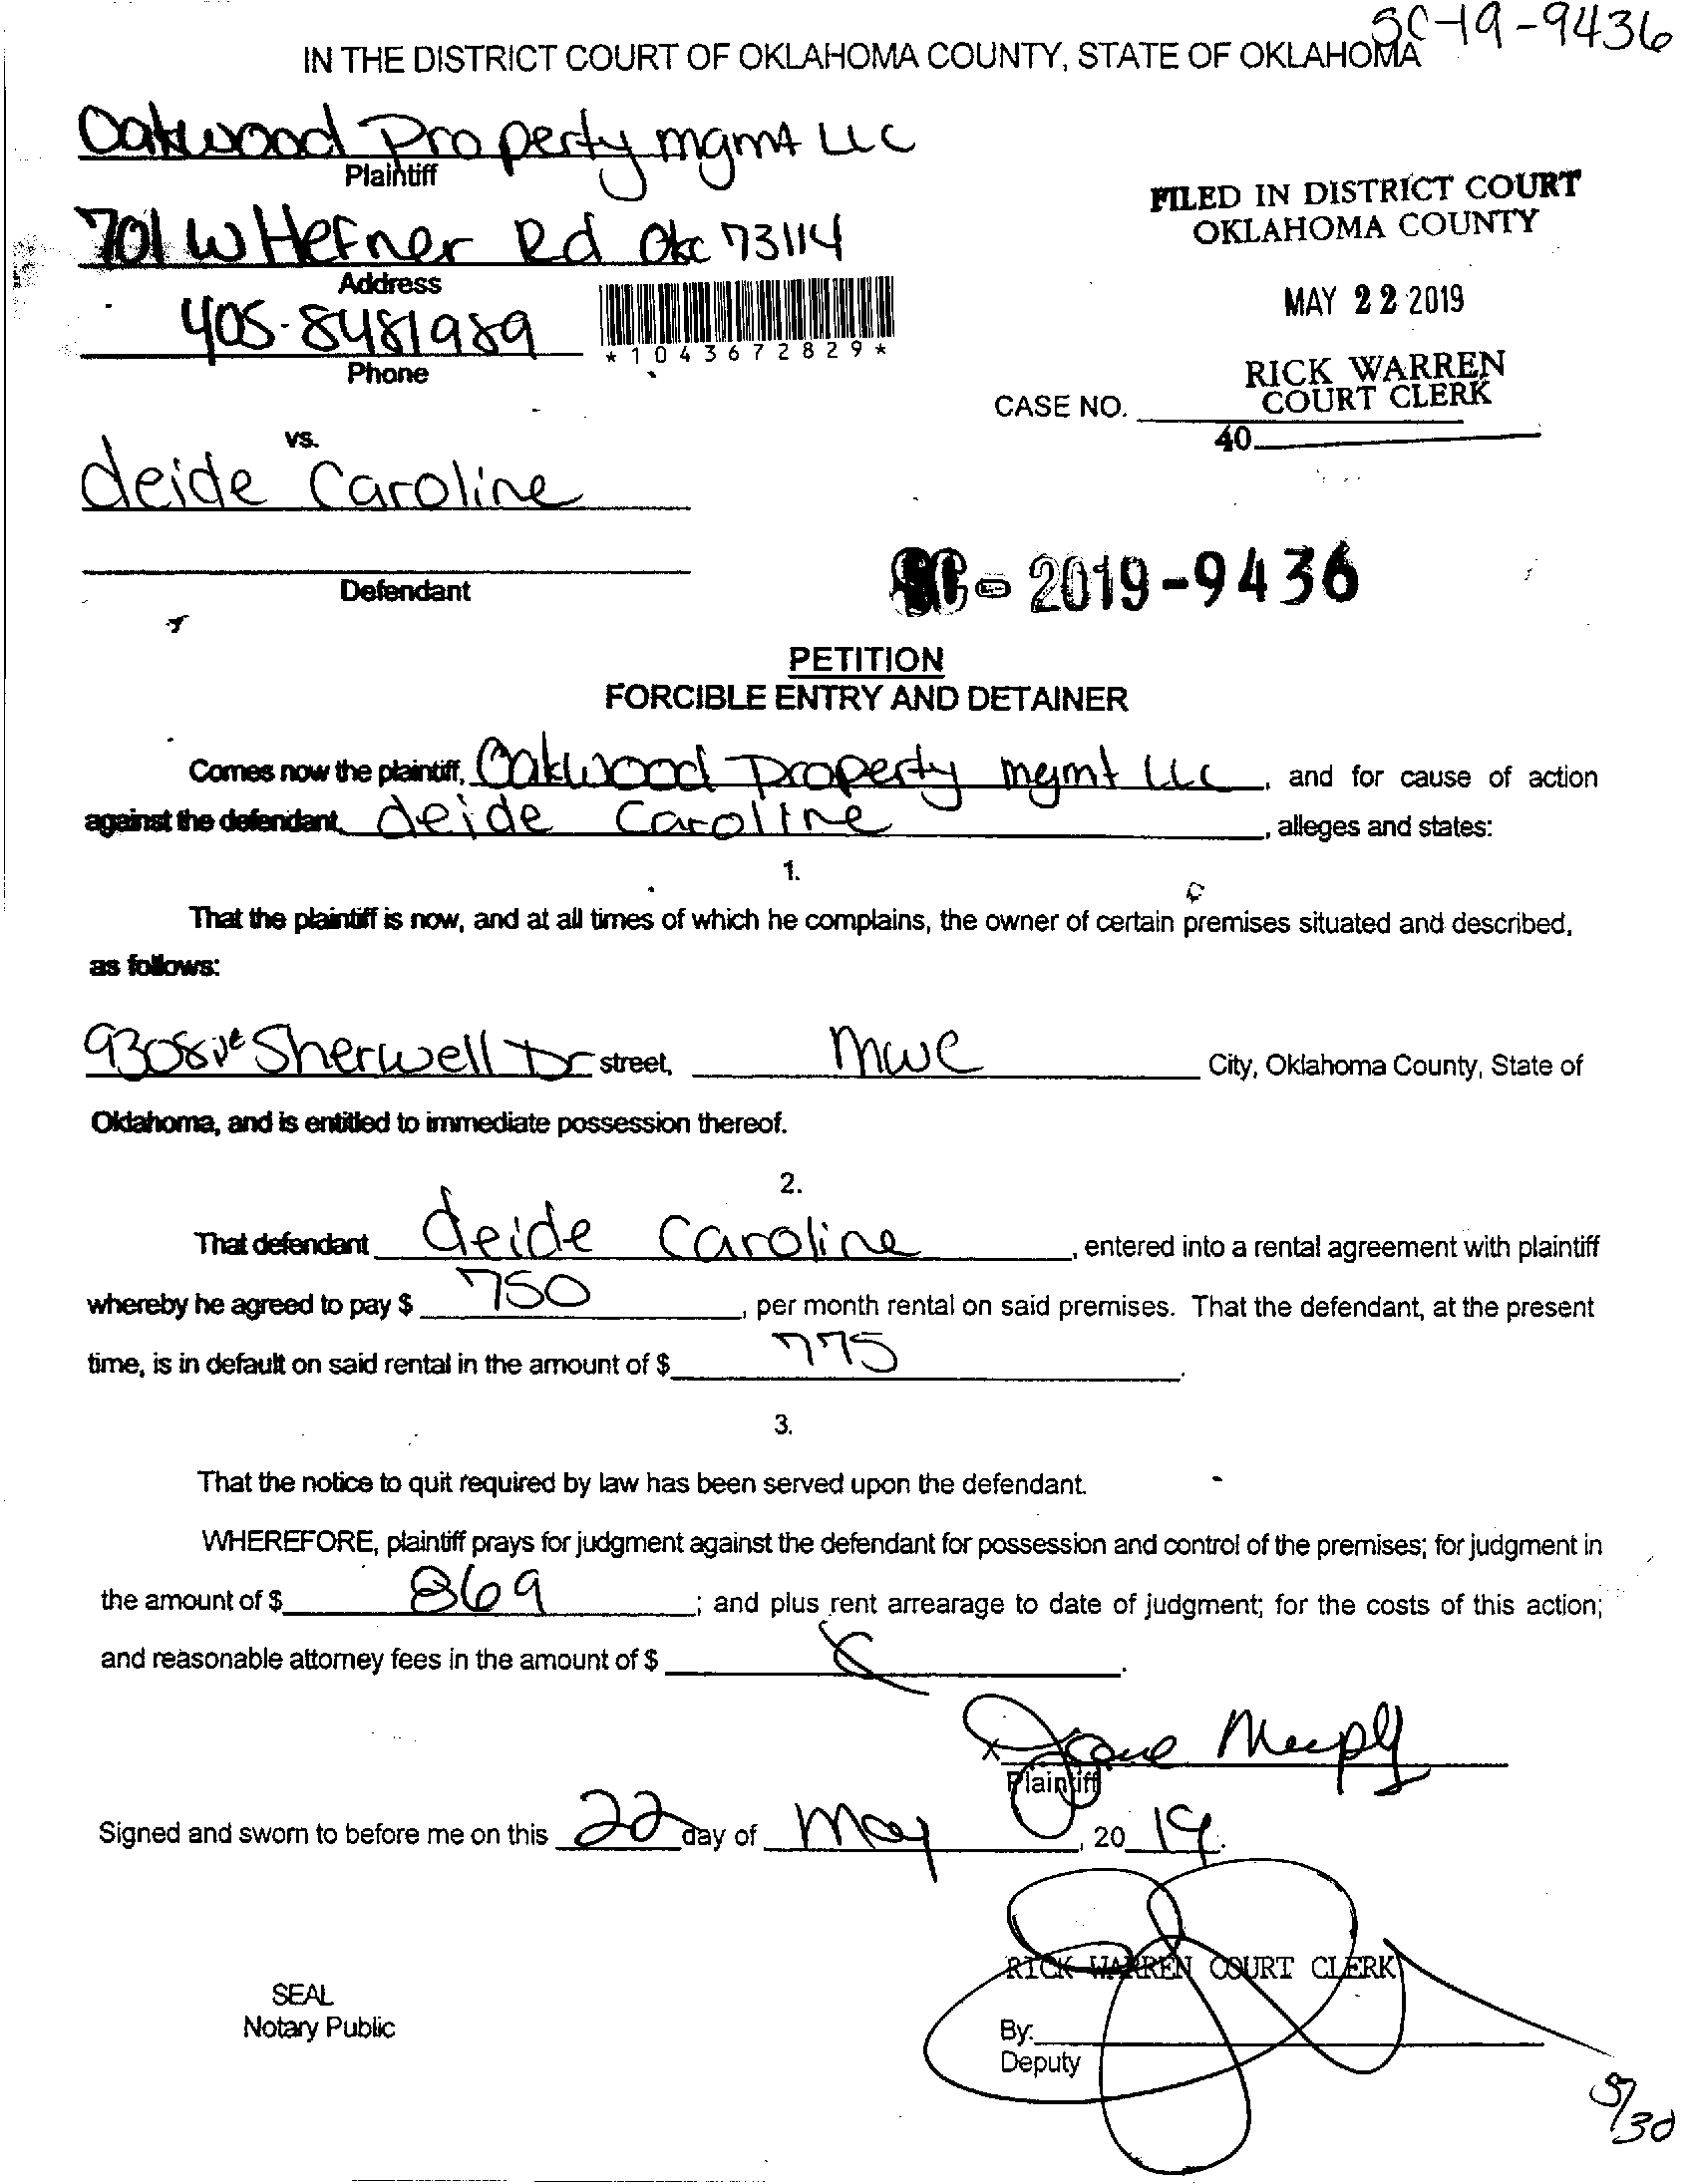 SC-19-9436
IN THE DISTRICT COURT OF OKLAHOMA COUNTY, STATE OF OKLAHOMA
Oakwood Property mgmt LLC
Plaintiff
701 W Hefner Rd Okc 73114
Address
405-8481989
Phone
*1043672829*
FILED IN DISTRICT COURT
OKLAHOMA COUNTY
MAY 22 2019
RICK WARREN
COURT CLERK
CASE NO.
40
vs.
deide Caroline
Defendant
SC-2019-9436
PETITION
FORCIBLE ENTRY AND DETAINER
Comes now the plaintiff, Oakwood Property mgmt LLC, and for cause of action
against the defendant, deide Caroline, alleges and states:
1.
That the plaintiff is now, and at all times of which he complains, the owner of certain premises situated and described,
as follows:
9308 Sherwell Dr street, mwc City, Oklahoma County, State of
Oklahoma, and is entitled to immediate possession thereof.
2.
That defendant deide Caroline, entered into a rental agreement with plaintiff
whereby he agreed to pay $ 750, per month rental on said premises. That the defendant, at the present
time, is in default on said rental in the amount of $ 775.
3.
That the notice to quit required by law has been served upon the defendant.
WHEREFORE, plaintiff prays for judgment against the defendant for possession and control of the premises; for judgment in
the amount of $ 869; and plus rent arrearage to date of judgment; for the costs of this action;
and reasonable attorney fees in the amount of $.
x
Plaintiff
Signed and sworn to before me on this 22 day of May, 2019.
RICK WARREN COURT CLERK
SEAL
Notary Public
By:
Deputy
5/30